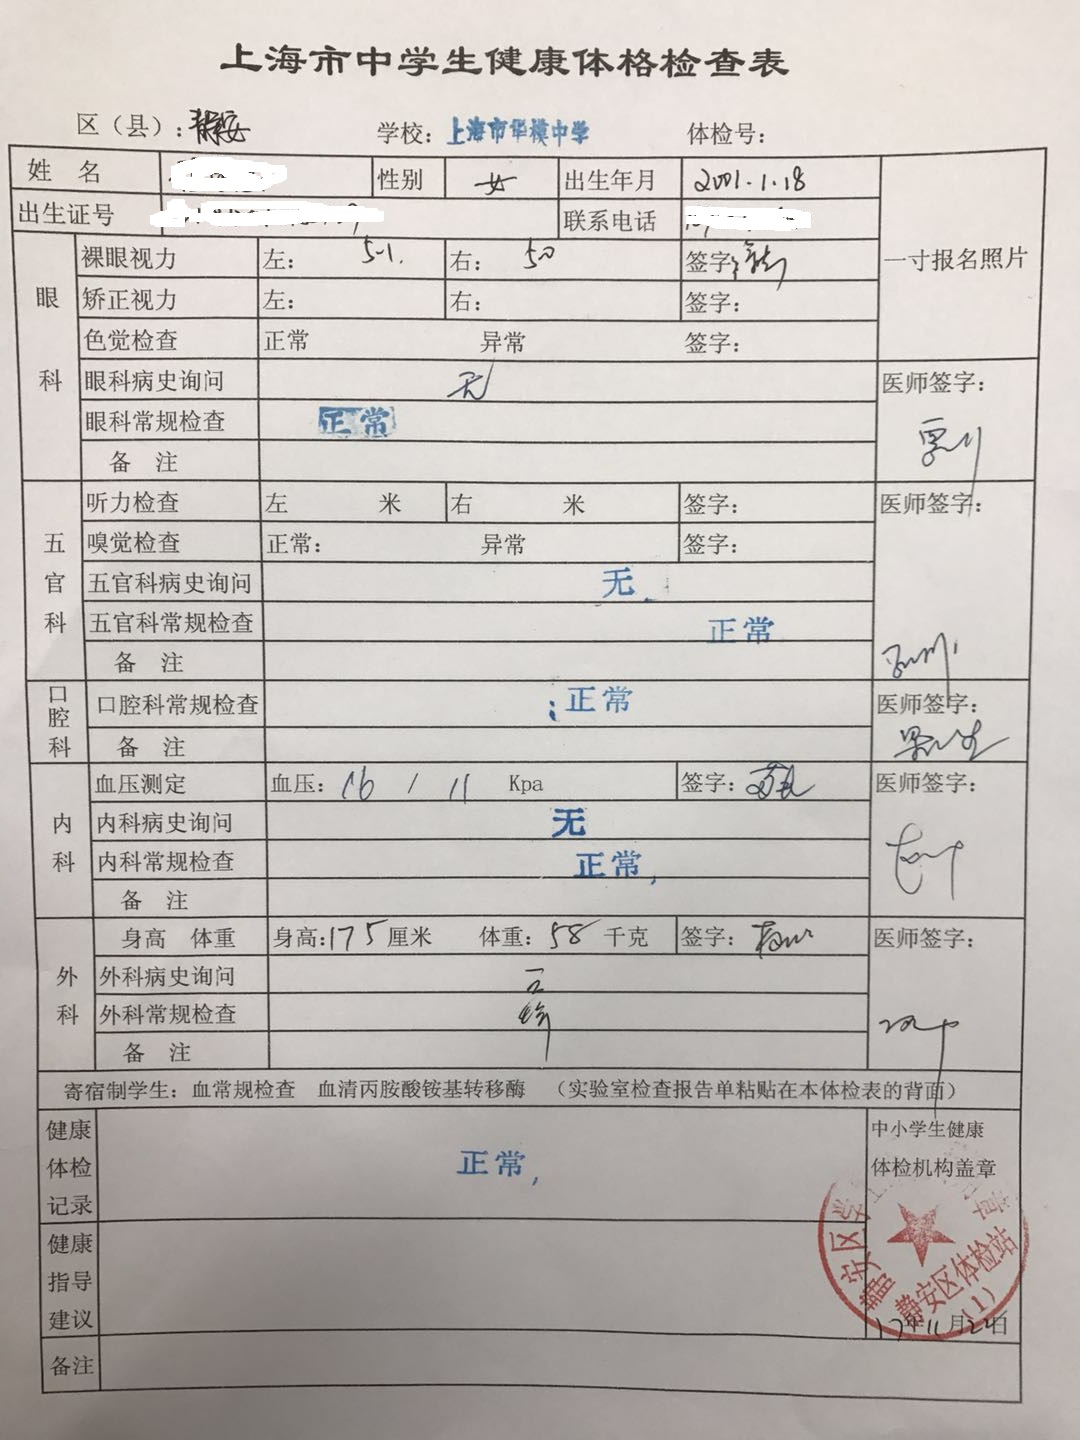 上海市中学生健康体格检查表
区（县）：静安 学校：上海市华模中学 体检号：
姓 名 性别 女 出生年月 2001.1.18
出生证号 联系电话
一寸报名照片
眼科
裸眼视力 左：5.1. 右：5.0 签字：
矫正视力 左： 右： 签字：
色觉检查 正常 异常 签字：
眼科病史询问 无 医师签字：
眼科常规检查 正常
备 注
五官科
听力检查 左 米 右 米 签字： 医师签字：
嗅觉检查 正常： 异常 签字：
五官科病史询问 无
五官科常规检查 正常
备 注
口腔科
口腔科常规检查 正常 医师签字：
备 注
内科
血压测定 血压：16 / 11 Kpa 签字： 医师签字：
内科病史询问 无
内科常规检查 正常
备 注
外科
身高 体重 身高：175厘米 体重：58千克 签字： 医师签字：
外科病史询问
外科常规检查
备 注
寄宿制学生：血常规检查 血清丙胺酸铵基转移酶 （实验室检查报告单粘贴在本体检表的背面）
健康体检记录 正常
中小学生健康
体检机构盖章
静安区体检站
(1)
健康指导建议
17年11月22日
备注